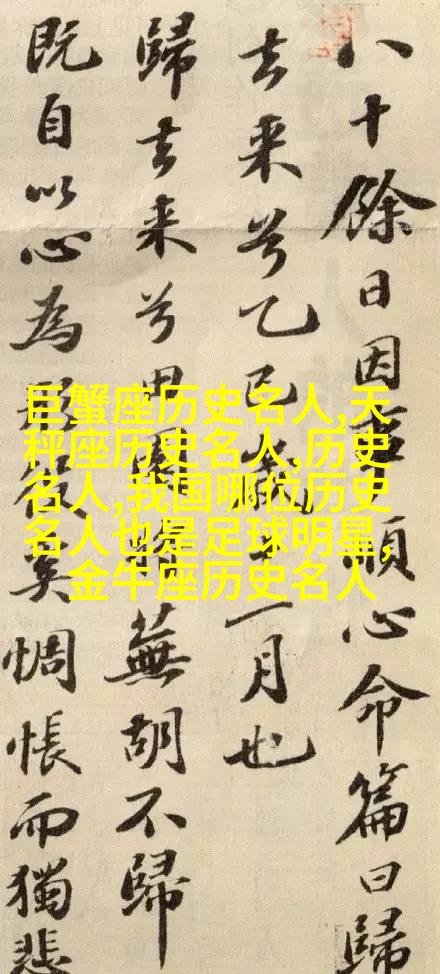 八十餘日因事順心命篇曰歸
去来兮乙巳歲十一月也
歸去来兮田園将蕪胡不歸
既自以心為形役奚惆悵而獨悲
巨蟹座历史名人,天
秤座历史名人,历史
名人,我国哪位历史
名人也是足球明星,
金牛座历史名人